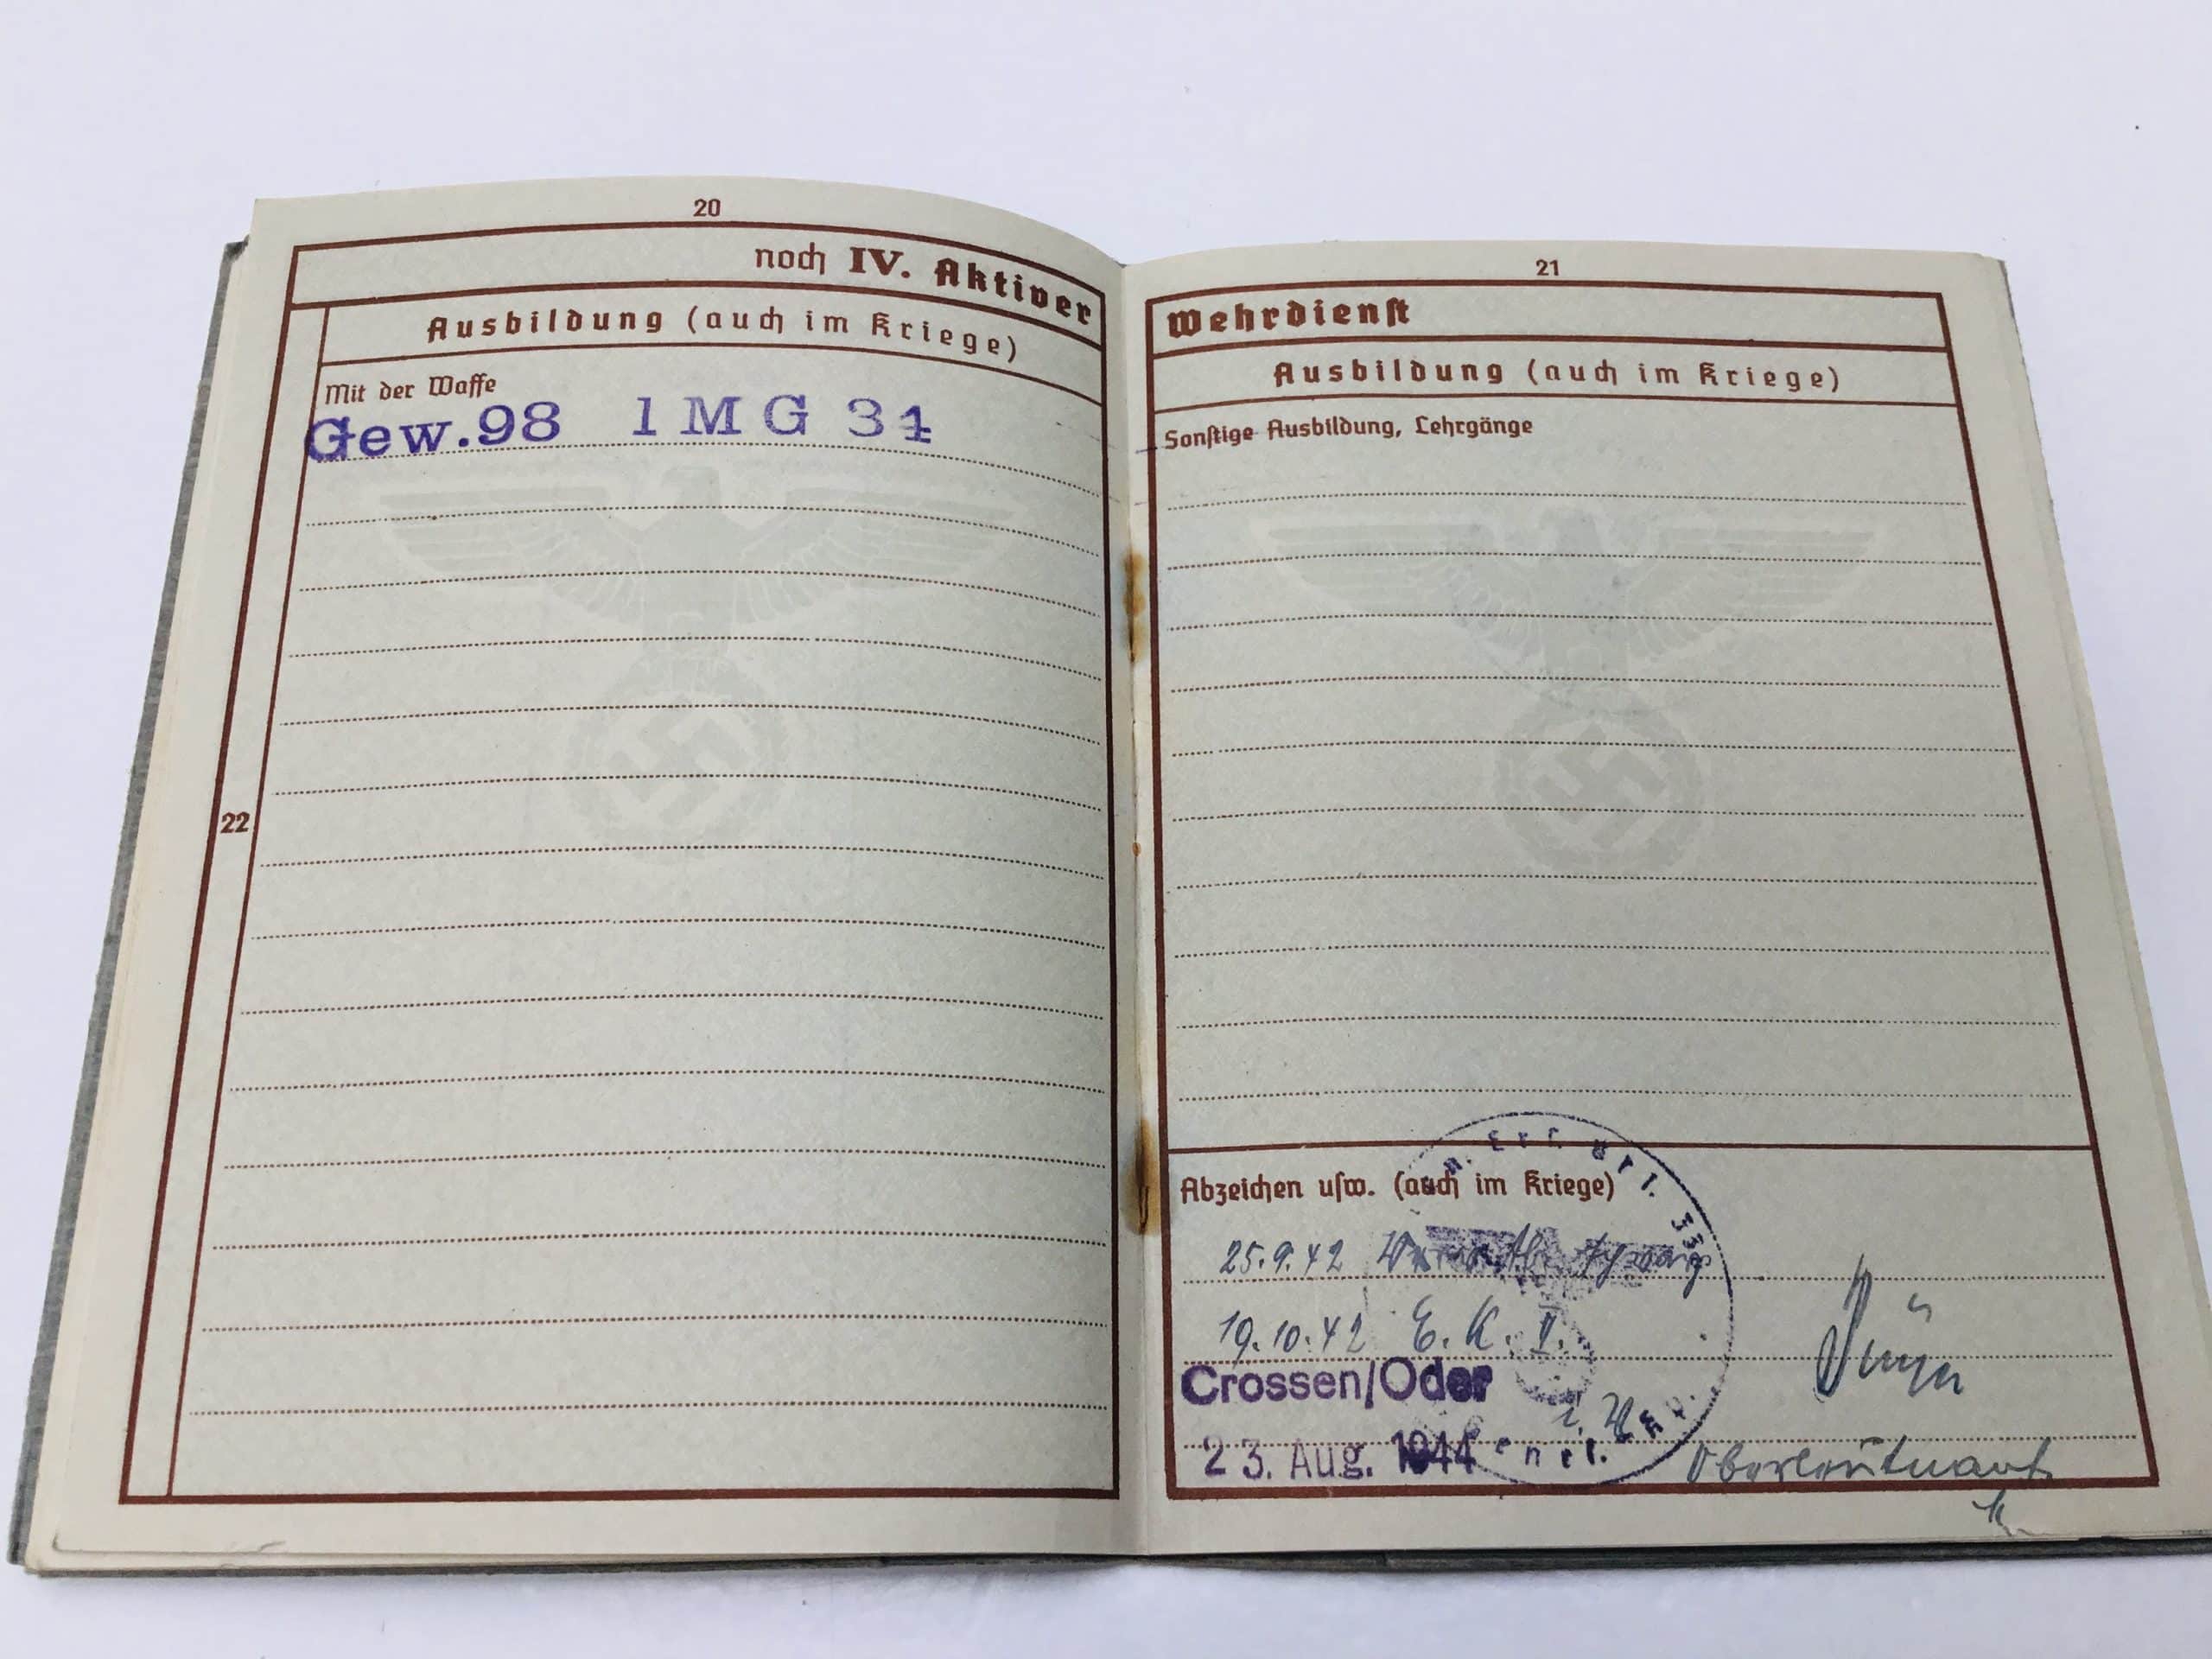 20
noch IV. Aktiver
Ausbildung (auch im Kriege)
Mit der Waffe
Gew.98 lMG 34
22
21
Wehrdienst
Ausbildung (auch im Kriege)
Sonstige Ausbildung, Lehrgänge
Abzeichen usw. (auch im Kriege)
25.9.42
19.10.42 E. K. I.
Crossen/Oder
23. Aug. 1944
Oberleutnant